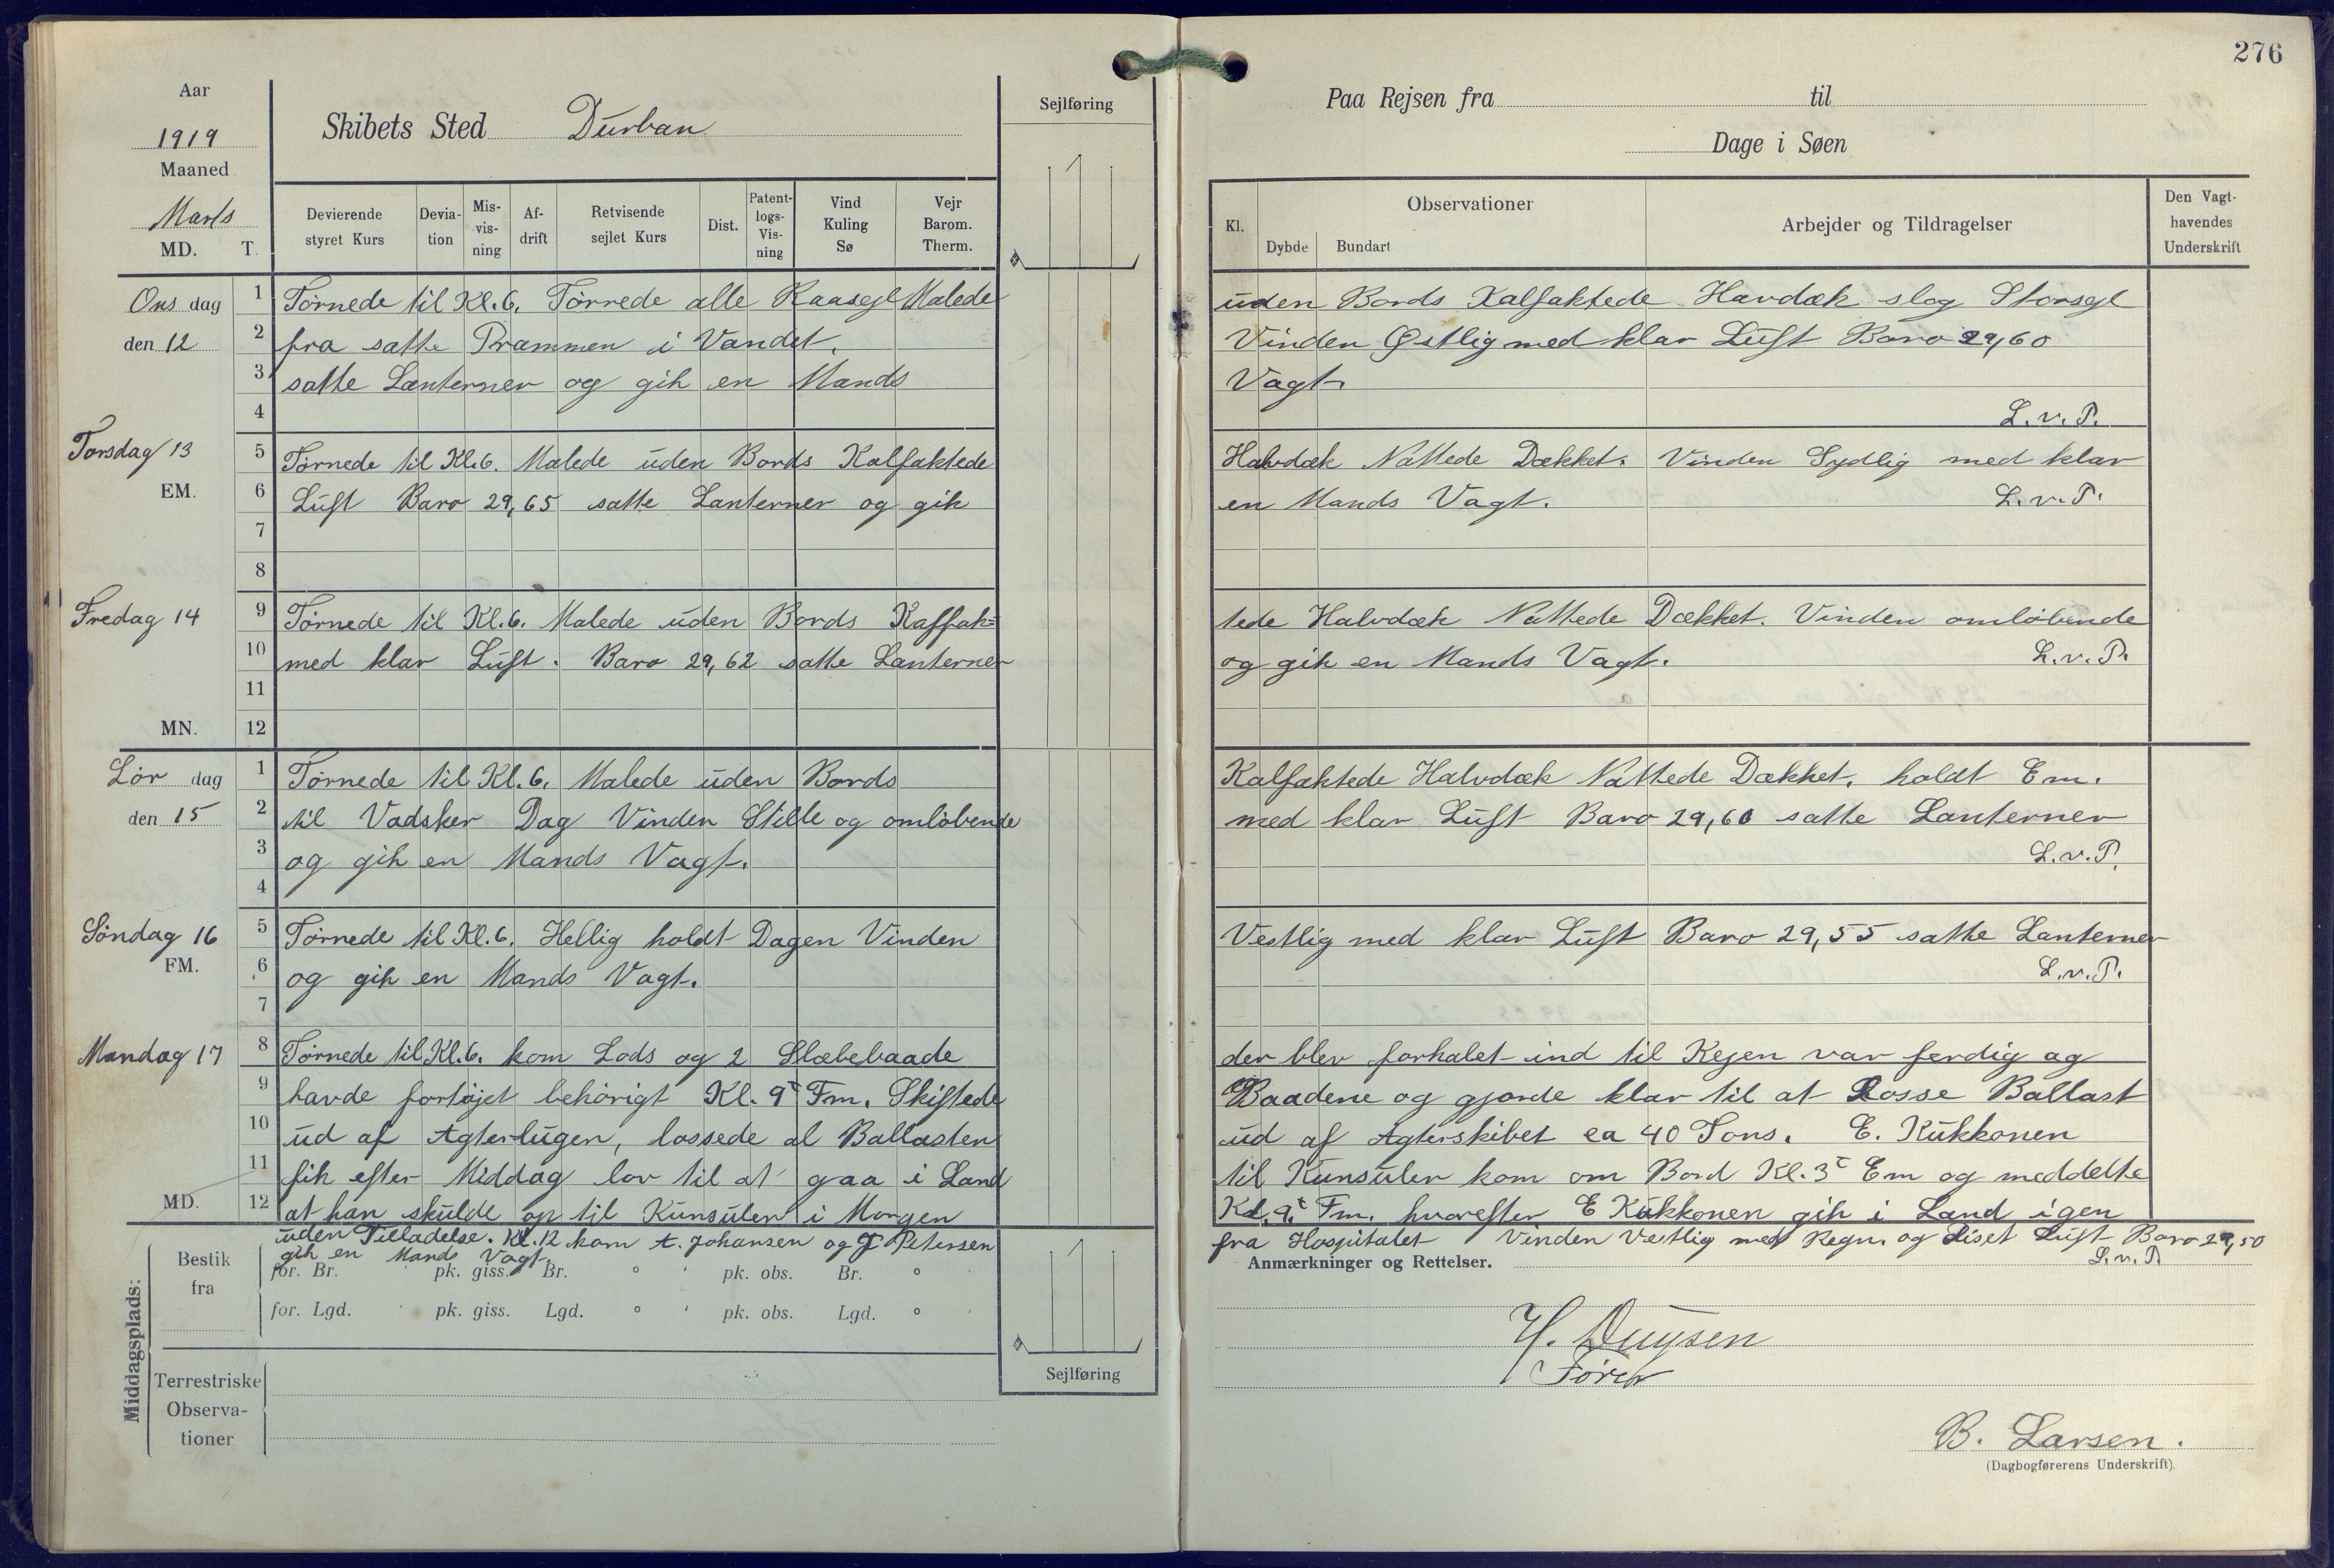 276
Aar
1919
Maaned
Marts
MD. T.
Skibets Sted Durban
Sejlføring
Paa Rejsen fra til
Dage i Søen
Devierende styret Kurs
Devia-tion
Mis-vis-ning
Af-drift
Retvisende sejlet Kurs
Dist.
Patent-logs-Vis-ning
Vind Kuling Sø
Vejr Barom. Therm.
Kl.
Observationer
Dybde Bundart
Arbejder og Tildragelser
Den Vagt-havendes Underskrift
Ons dag den 12
1 Törnede til Kl. 6. Törrede alle Raasejl Malede uden Bords Kalfaktede Havdæk slog Storsejl
2 fra satte Prammen i Vandet. Vinden Østlig med klar Luft Baro 29,60
3 satte Lanterner og gik en Mands Vagt.
4 L.v.P.
Torsdag 13
EM.
5 Törnede til Kl. 6. Malede uden Bords Kalfaktede Halvdæk Nattede Dækket. Vinden Sydlig med klar
6 Luft Baro 29,65 satte Lanterner og gik en Mands Vagt. L.v.P.
7
8
Fredag 14
9 Törnede til Kl. 6. Malede uden Bords Kaffak= tede Halvdæk Nattede Dækket. Vinden omlöbende
10 med klar Luft. Baro 29,62 satte Lanterner og gik en Mands Vagt. L.v.P.
11
MN. 12
Lör dag den 15
1 Törnede til Kl. 6. Malede uden Bords Kalfaktede Halvdæk Nattede Dækket. holdt Em.
2 til Vadsker Dag Vinden Stille og omlöbende med klar Luft Baro 29,60 satte Lanterner
3 og gik en Mands Vagt. L.v.P.
4
Söndag 16
FM.
5 Törnede til Kl. 6. Hellig holdt Dagen Vinden Vestlig med klar Luft Baro 29,55 satte Lanterner
6 og gik en Mands Vagt. L.v.P.
7
Mandag 17
8 Törnede til Kl. 6. kom Lods og 2 Slæbebaade der blev forhalet ind til Kejen var ferdig og
9 havde fortöjet behörigt Kl. 9 Fm. Skiftede Baadene og gjorde klar til at Losse Ballast
10 ud af Agterlugen, lossede al Ballasten ud af Agterskibet ca 40 Tons. E. Kukkonen
11 fik efter Middag lov til at gaa i Land til Kunsulen kom om Bord Kl. 3 Em og meddelte
MD. 12 at han skulde op til Kunsulen i Morgen Kl. 9 Fm. hvorefter E Kukkonen gik i Land igen
uden Tilladelse. Kl. 12 kom A. Johansen og J Petersen fra Hospitalet Vinden Vestlig med Regn. og Diset Luft Baro 29,50
gik en Mands Vagt. L.v.P.
Middagsplads:
Bestik fra
for. Br. pk. giss. Br. ° ' pk. obs. Br. °
for. Lgd. ' pk. giss. Lgd. ° ' pk. obs. Lgd. ° '
Terrestriske Observa-tioner
Sejlføring
Anmærkninger og Rettelser.
H. Duysen
Förer
B. Larsen.
(Dagbogførerens Underskrift).